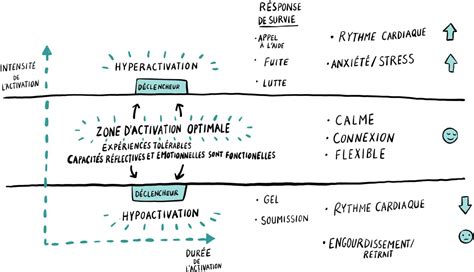 RÉSPONSE
DE SURVIE
INTENSITÉ
DE
L'ACTIVATION
HYPERACTIVATION
DÉCLENCHEUR
• APPEL
À L'AIDE
• FUITE
• LUTTE
• RYTHME CARDIAQUE
• ANXIÉTÉ/STRESS
ZONE D'ACTIVATION OPTIMALE
EXPÉRIENCES TOLÉRABLES
CAPACITÉS RÉFLECTIVES ET ÉMOTIONNELLES SONT FONCTIONELLES
• CALME
• CONNEXION
• FLEXIBLE
DÉCLENCHEUR
HYPOACTIVATION
• GEL
• SOUMISSION
• RYTHME CARDIAQUE
• ENGOURDISSEMENT/
RETRAIT
DURÉE
DE
L'ACTIVATION